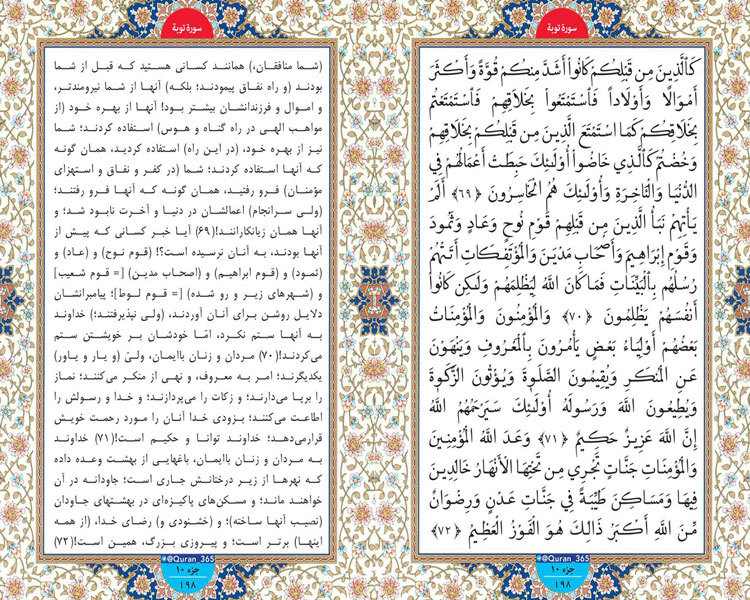 سورهٔ توبة
كَالَّذِينَ مِن قَبْلِكُمْ كَانُوا أَشَدَّ مِنكُمْ قُوَّةً وَأَكْثَرَ
أَمْوَالًا وَأَوْلَاداً فَاسْتَمْتَعُوا بِخَلَاقِهِمْ فَاسْتَمْتَعْتُم
بِخَلَاقِكُمْ كَمَا اسْتَمْتَعَ الَّذِينَ مِن قَبْلِكُمْ بِخَلَاقِهِمْ
وَخُضْتُمْ كَالَّذِي خَاضُوا أُوْلَـئِكَ حَبِطَتْ أَعْمَالُهُمْ فِي
الدُّنْيَا وَالْآخِرَةِ وَأُوْلَئِكَ هُمُ الْخَاسِرُونَ ﴿۶۹﴾ أَلَمْ
يَأْتِهِمْ نَبَأُ الَّذِينَ مِن قَبْلِهِمْ قَوْمِ نُوحٍ وَعَادٍ وَثَمُودَ
وَقَوْمِ إِبْرَاهِيمَ وَأَصْحَابِ مَدْيَنَ وَالْمُؤْتَفِكَاتِ أَتَتْهُمْ
رُسُلُهُم بِالْبَيِّنَاتِ فَمَا كَانَ اللَّهُ لِيَظْلِمَهُمْ وَلَـكِن كَانُوا
أَنفُسَهُمْ يَظْلِمُونَ ﴿۷۰﴾ وَالْمُؤْمِنُونَ وَالْمُؤْمِنَاتُ
بَعْضُهُمْ أَوْلِيَاءُ بَعْضٍ يَأْمُرُونَ بِالْمَعْرُوفِ وَيَنْهَوْنَ
عَنِ الْمُنكَرِ وَيُقِيمُونَ الصَّلَوةَ وَيُؤْتُونَ الزَّكَوةَ
وَيُطِيعُونَ اللَّهَ وَرَسُولَهُ أُوْلَـئِكَ سَيَرْحَمُهُمُ اللَّهُ
إِنَّ اللَّهَ عَزِيزٌ حَكِيمٌ ﴿۷۱﴾ وَعَدَ اللَّهُ الْمُؤْمِنِينَ
وَالْمُؤْمِنَاتِ جَنَّاتٍ تَجْرِي مِن تَحْتِهَا الْأَنْهَارُ خَالِدِينَ
فِيهَا وَمَسَاكِنَ طَيِّبَةً فِي جَنَّاتِ عَدْنٍ وَرِضْوَانٌ
مِّنَ اللَّهِ أَكْبَرُ ذَالِكَ هُوَ الْفَوْزُ الْعَظِيمُ ﴿۷۲﴾
@Quran_365
جزء ۱۰
۱۹۸
سورهٔ توبة
(شما منافقان،) همانند کسانی هستید که قبل از شما
بودند (و راه نفاق پیمودند؛ بلکه) آنها از شما نیرومندتر،
و اموال و فرزندانشان بیشتر بود! آنها از بهره خود (از
مواهب الهی در راه گناه و هوس) استفاده کردند؛ شما
نیز از بهره خود، (در این راه) استفاده کردید، همان گونه
که آنها استفاده کردند؛ شما (در کفر و نفاق و استهزای
مؤمنان) فرو رفتید، همان گونه که آنها فرو رفتند؛
(ولی سرانجام) اعمالشان در دنیا و آخرت نابود شد؛ و
آنها همان زیانکارانند!(۶۹) آیا خبر کسانی که پیش از
آنها بودند، به آنان نرسیده است؟! (قوم نوح) و (عاد) و
(ثمود) و (قوم ابراهیم) و (اصحاب مدین) [= قوم شعیب]
و (شهرهای زیر و رو شده) [= قوم لوط]؛ پیامبرانشان
دلایل روشن برای آنان آوردند، (ولی نپذیرفتند؛) خداوند
به آنها ستم نکرد، امّا خودشان بر خویشتن ستم
می‌کردند!(۷۰) مردان و زنان باایمان، ولیّ (و یار و یاور)
یکدیگرند؛ امر به معروف، و نهی از منکر می‌کنند؛ نماز
را برپا می‌دارند؛ و زکات را می‌پردازند؛ و خدا و رسولش را
اطاعت می‌کنند؛ بزودی خدا آنان را مورد رحمت خویش
قرارمی‌دهد؛ خداوند توانا و حکیم است!(۷۱) خداوند
به مردان و زنان باایمان، باغهایی از بهشت وعده داده
که نهرها از زیر درختانش جاری است؛ جاودانه در آن
خواهند ماند؛ و مسکن‌های پاکیزه‌ای در بهشتهای جاودان
(نصیب آنها ساخته)؛ و (خشنودی و) رضای خدا، (از همه
اینها) برتر است؛ و پیروزی بزرگ، همین است!(۷۲)
@Quran_365
جزء ۱۰
۱۹۸